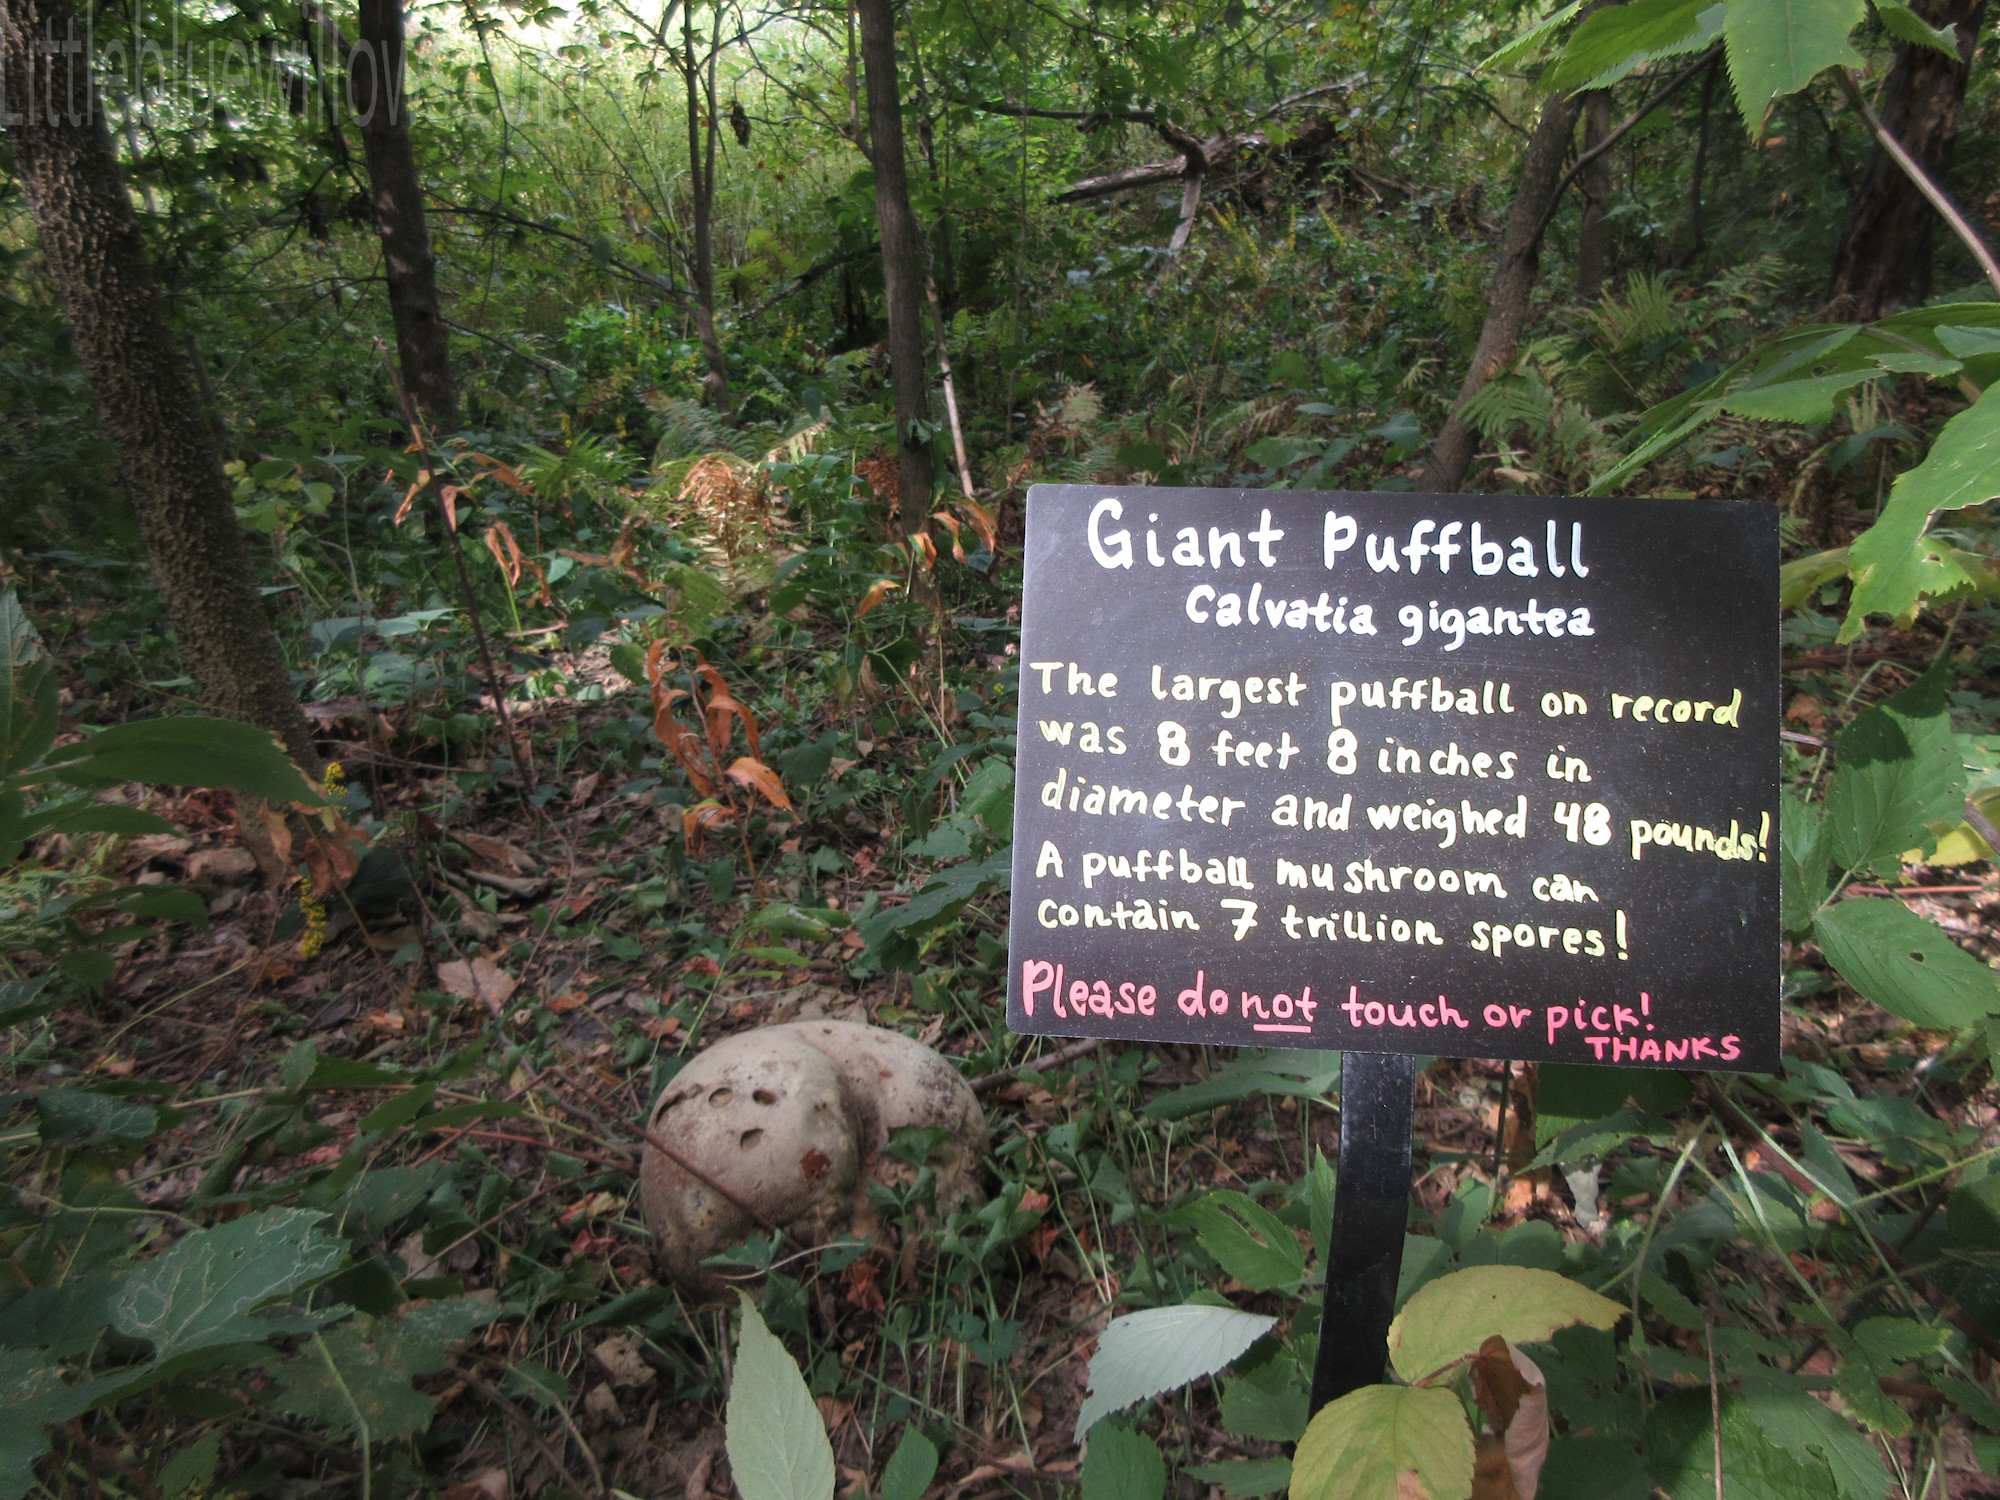 Littlebluewillow.com
Giant Puffball
Calvatia gigantea
The largest puffball on record
was 8 feet 8 inches in
diameter and weighed 48 pounds!
A puffball mushroom can
contain 7 trillion spores!
Please do not touch or pick!
THANKS